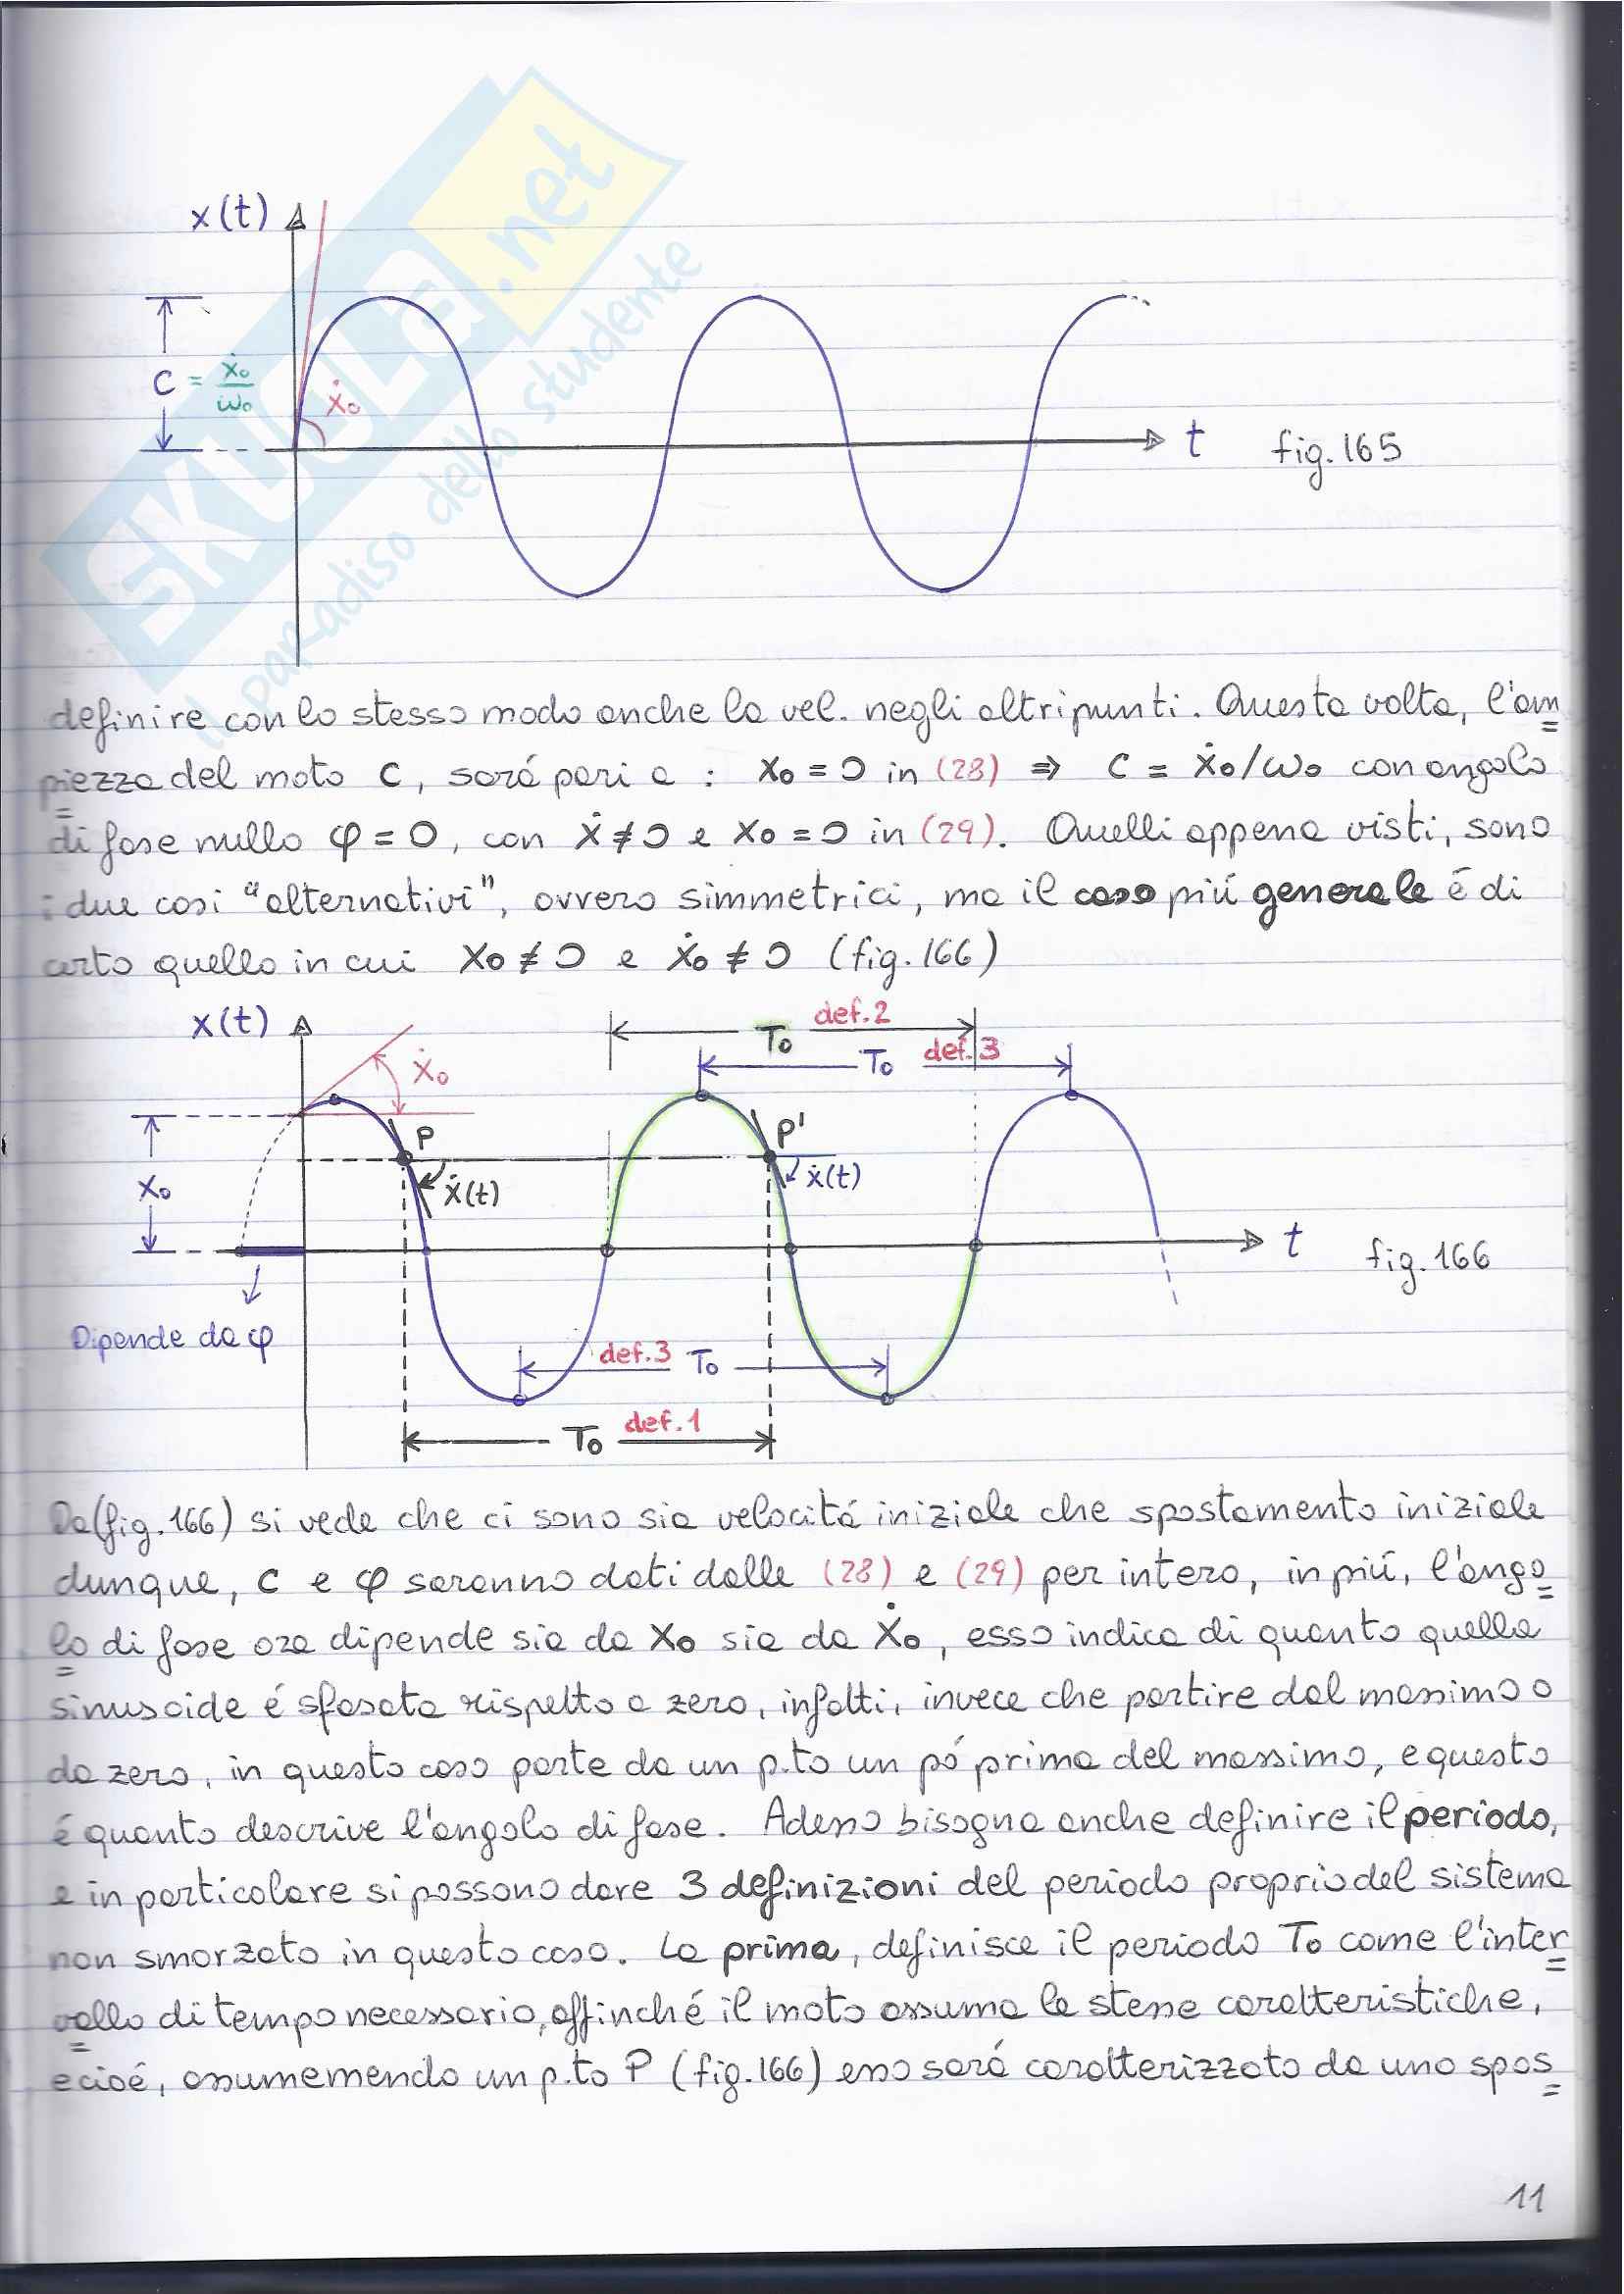 SKUOLA.net
il paradiso dello studente
x(t)
C = ẋ₀/ω₀
ẋ₀
t
fig. 165
definire con lo stesso modo anche la vel. negli altri punti. Questa volta, l'am
piezza del moto C, sará pari a : X₀ = 0 in (28) ⇒ C = Ẋ₀/ω₀ con angolo
di fase nullo φ = 0, con Ẋ ≠ 0 e X₀ = 0 in (29). Quelli appena visti, sono
i due casi "alternativi", ovvero simmetrici, ma il caso piú generale é di
certo quello in cui X₀ ≠ 0 e Ẋ₀ ≠ 0 (fig. 166)
x(t)
T₀ def. 2
T₀ def. 3
Ẋ₀
P
P'
X₀
ẋ(t)
ẋ(t)
t
fig. 166
Dipende da φ
def. 3 T₀
T₀ def. 1
Da (fig. 166) si vede che ci sono sia velocitá iniziale che spostamento iniziale
dunque, C e φ saranno dati dalle (28) e (29) per intero, in piú, l'ango
lo di fase ora dipende sia da X₀ sia da Ẋ₀, esso indica di quanto quella
sinusoide é sfasata rispetto a zero, infatti, invece che partire dal massimo o
da zero, in questo caso parte da un p.to un pó prima del massimo, e questo
é quanto descrive l'angolo di fase. Adesso bisogna anche definire il periodo,
e in particolare si possono dare 3 definizioni del periodo proprio del sistema
non smorzato in questo caso. La prima, definisce il periodo T₀ come l'inter
vallo di tempo necessario, affinché il moto assuma le stesse caratteristiche,
e cioé, assumemendo un p.to P (fig. 166) esso sará caratterizzato da uno spos
11